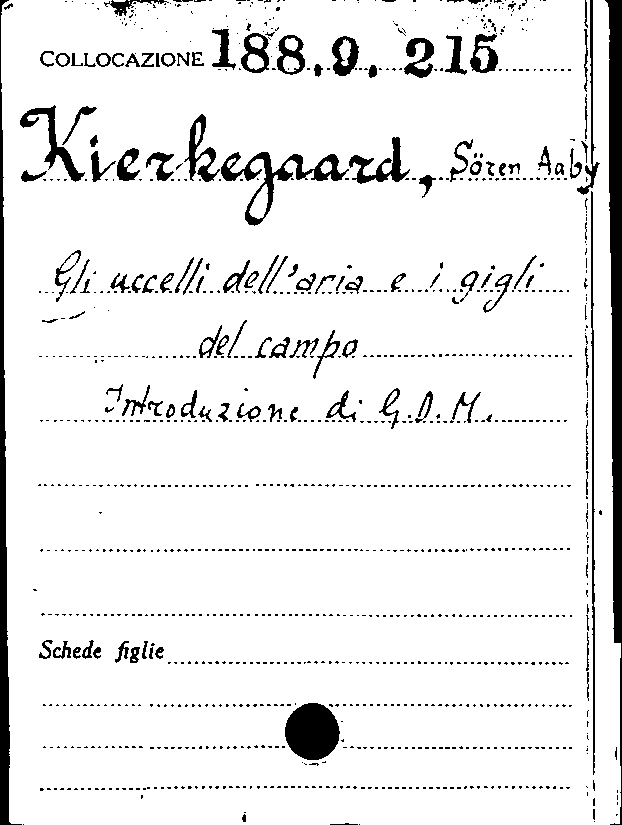 COLLOCAZIONE 188.9.215
Kierkegaard, Sören Aaby
Gli uccelli dell'aria e i gigli
del campo
Introduzione di G.D.M.
Schede figlie